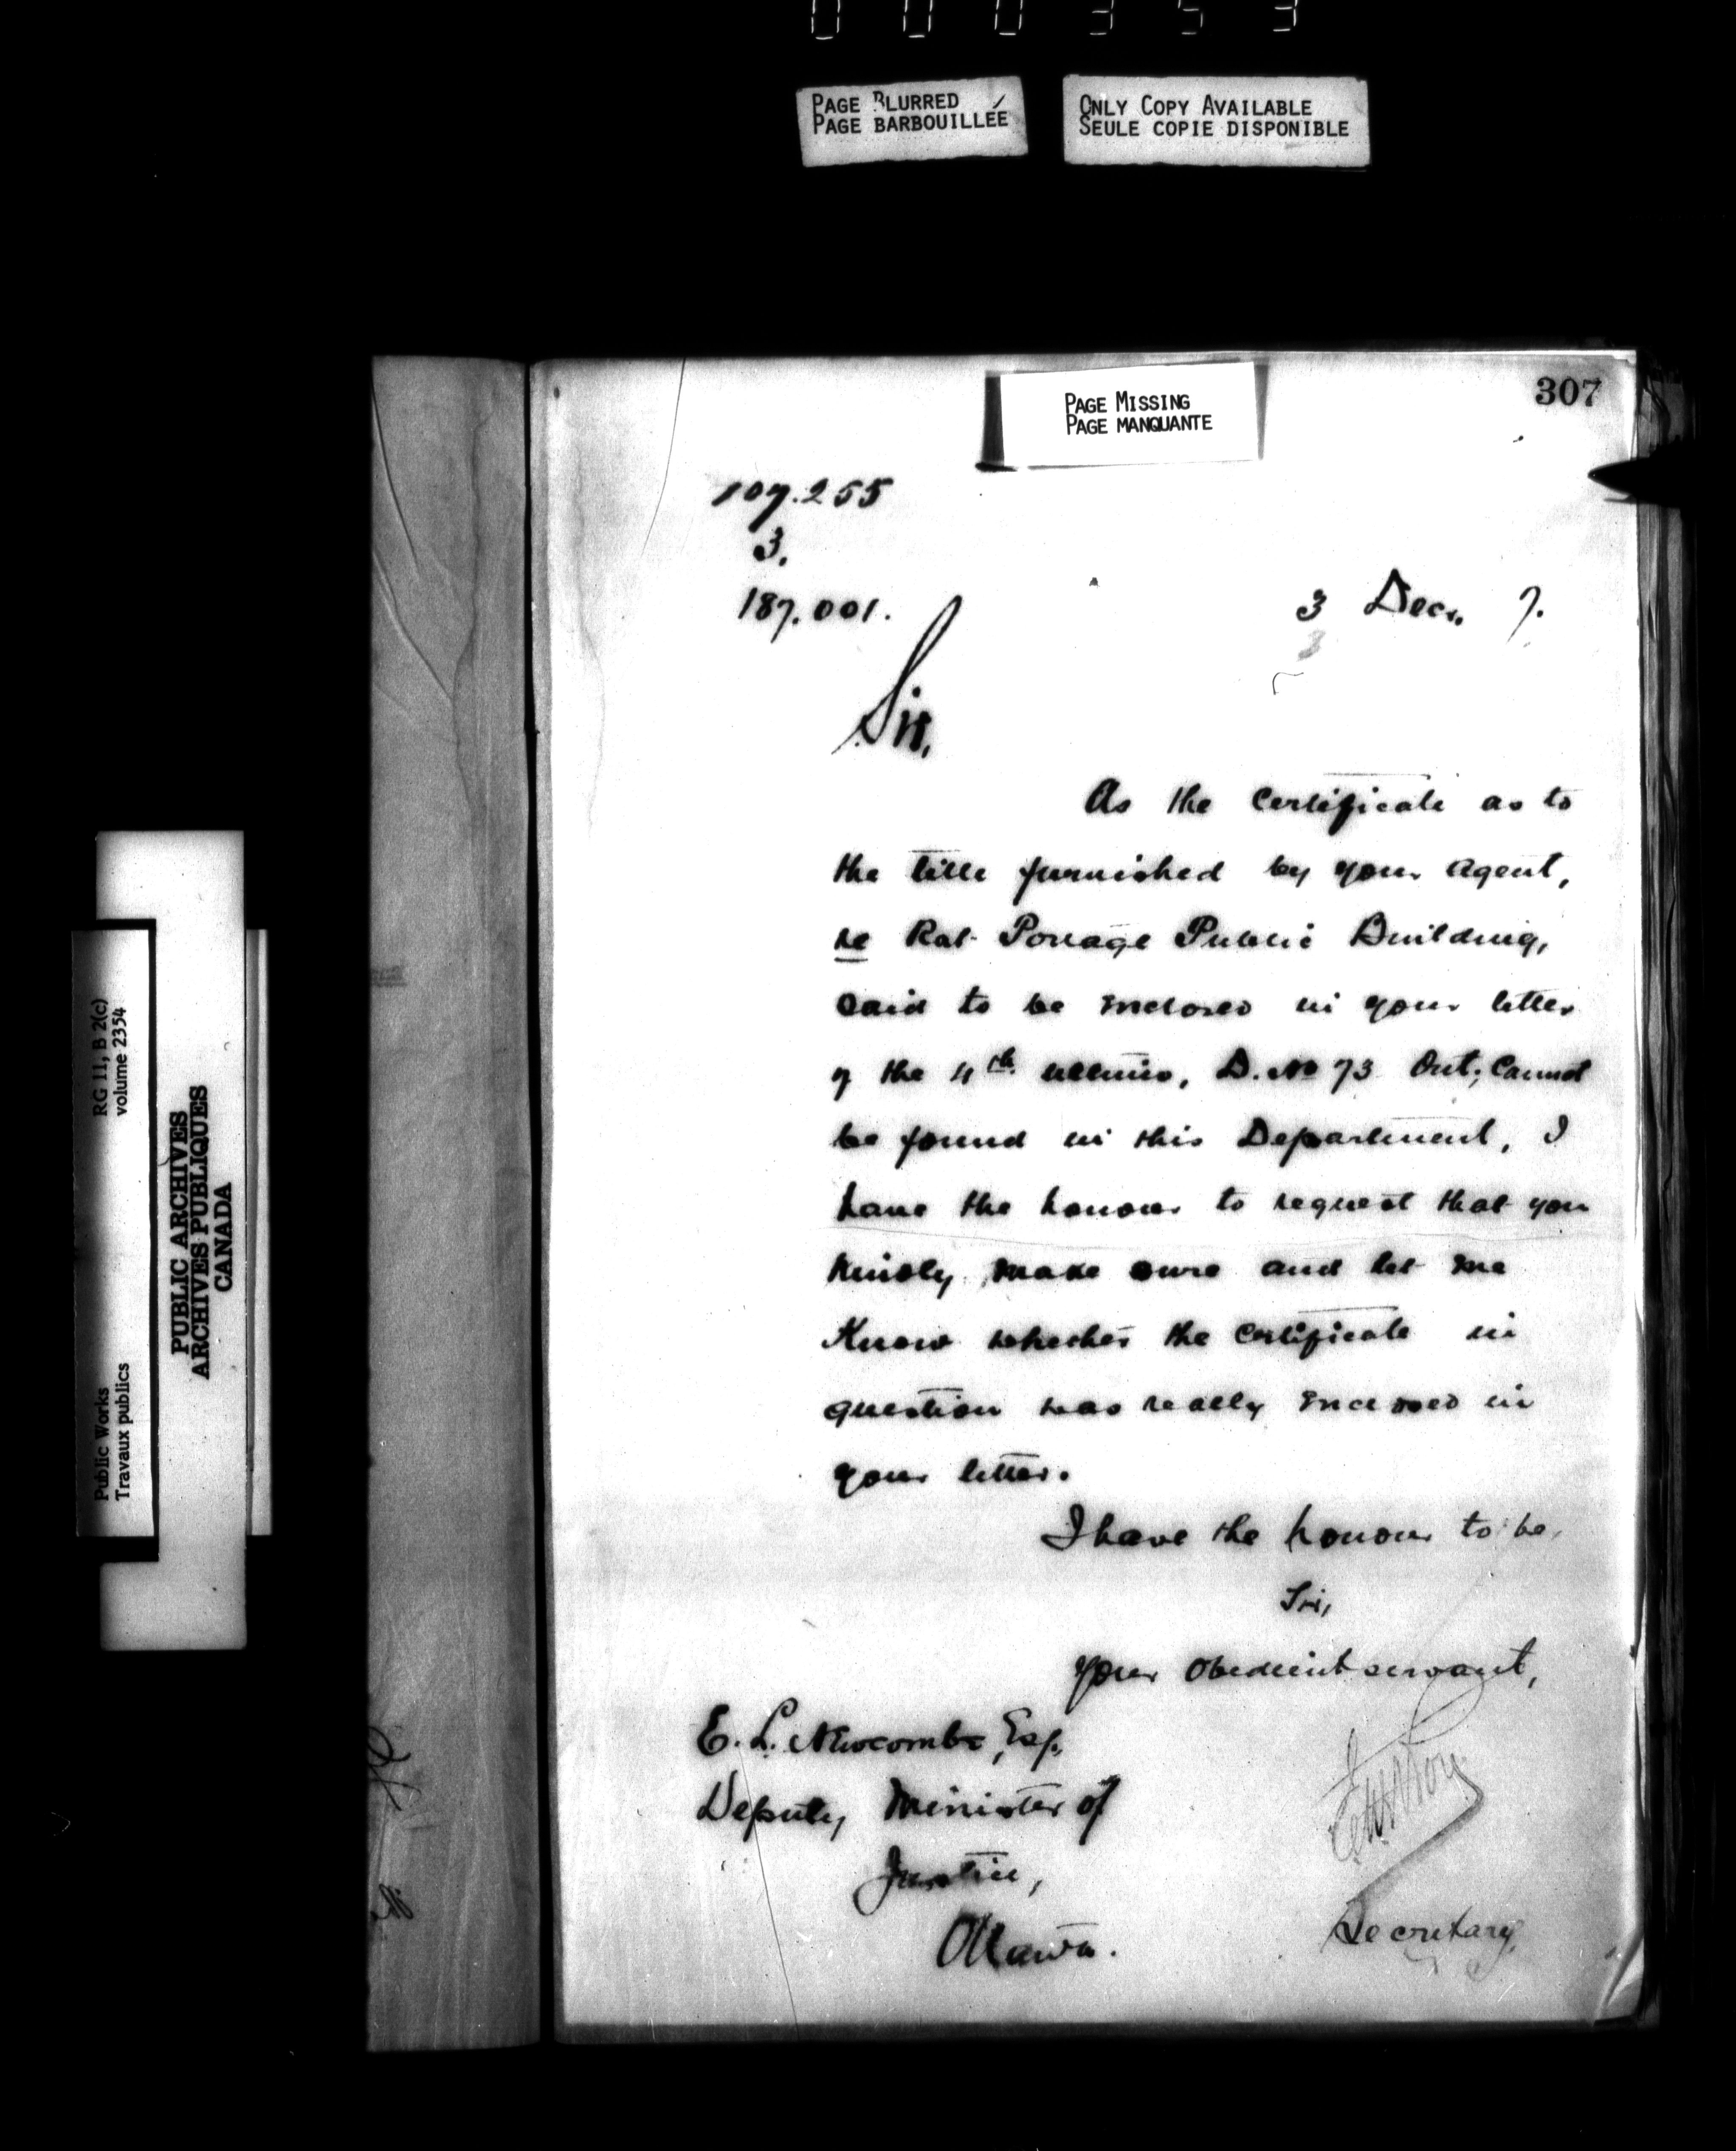 000353
PAGE BLURRED
PAGE BARBOUILLÉE
ONLY COPY AVAILABLE
SEULE COPIE DISPONIBLE
PAGE MISSING
PAGE MANQUANTE
307
107.255
3.
187.001.
3 Decr. 7.
Sir,
As the Certificate as to
the title furnished by your Agent,
re Rat Portage Public Building,
said to be enclosed in your letter
of the 4th ultimo, D. No 73 Ont; Cannot
be found in this Department, I
have the honour to request that you
kindly make sure and let me
Know whether the Certificate in
question was really enclosed in
your letter.
I have the honour to be,
Sir,
Your obedient servant,
E. L. Newcombe, Esq.,
Deputy Minister of
Justice,
Ottawa.
Secretary
RG 11, B 2(c)
volume 2354
Public Works
Travaux publics
PUBLIC ARCHIVES
ARCHIVES PUBLIQUES
CANADA